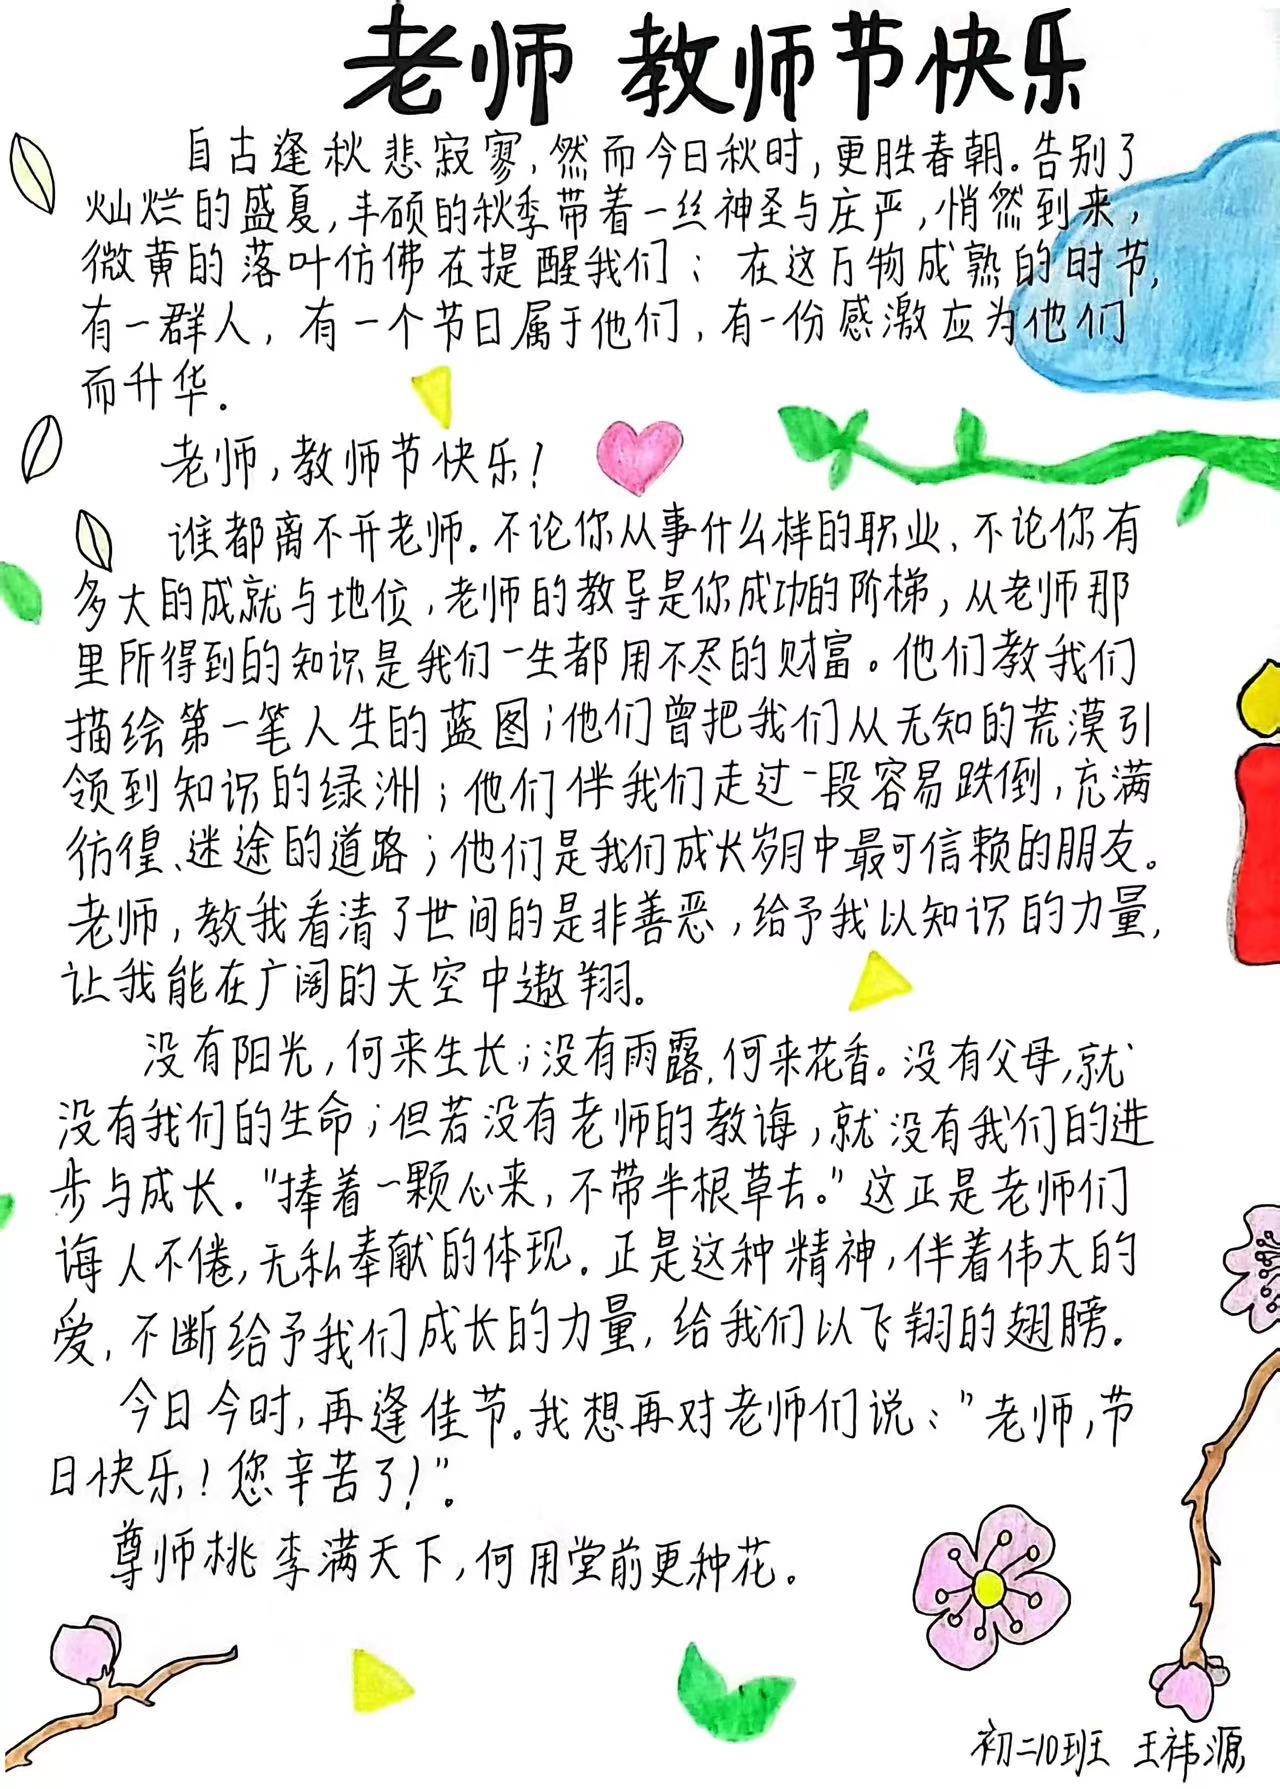 老师 教师节快乐
自古逢秋悲寂寥，然而今日秋时，更胜春朝。告别了
灿烂的盛夏，丰硕的秋季带着一丝神圣与庄严，悄然到来，
微黄的落叶仿佛在提醒我们：在这万物成熟的时节，
有一群人，有一个节日属于他们，有一份感激应为他们
而升华。
老师，教师节快乐！
谁都离不开老师。不论你从事什么样的职业、不论你有
多大的成就与地位，老师的教导是你成功的阶梯，从老师那
里所得到的知识是我们一生都用不尽的财富。他们教我们
描绘第一笔人生的蓝图；他们曾把我们从无知的荒漠引
领到知识的绿洲；他们伴我们走过一段容易跌倒，充满
彷徨、迷途的道路；他们是我们成长岁月中最可信赖的朋友。
老师，教我看清了世间的是非善恶，给予我以知识的力量，
让我能在广阔的天空中遨翔。
没有阳光，何来生长；没有雨露，何来花香。没有父母，就
没有我们的生命；但若没有老师的教诲，就没有我们的进
步与成长。"捧着一颗心来，不带半根草去。"这正是老师们
诲人不倦，无私奉献的体现。正是这种精神，伴着伟大的
爱，不断给予我们成长的力量，给我们以飞翔的翅膀。
今日今时，再逢佳节。我想再对老师们说："老师，节
日快乐！您辛苦了！"。
尊师桃李满天下，何用堂前更种花。
初二10班 王祎源